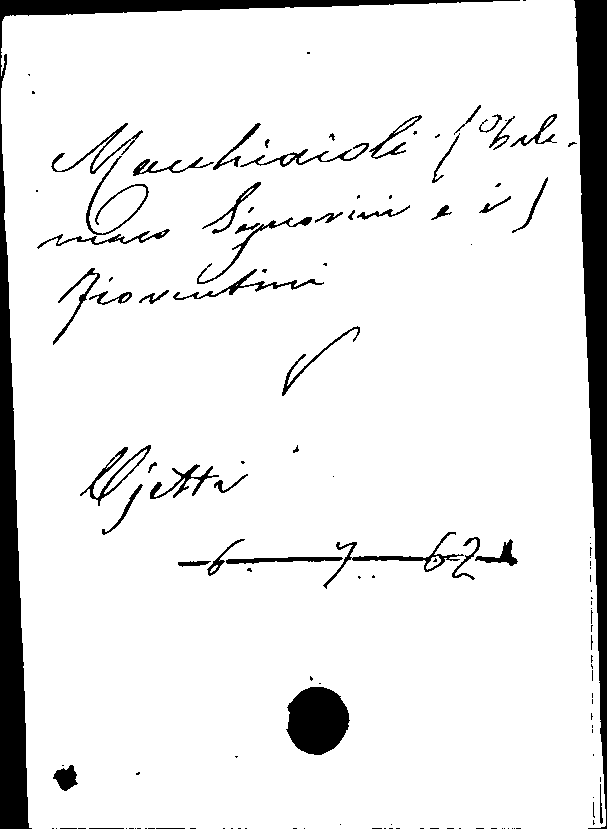 Macchiaioli (Tele-
maco Signorini e i)
Fiorentini
V
Ojetti
6. 7. 62